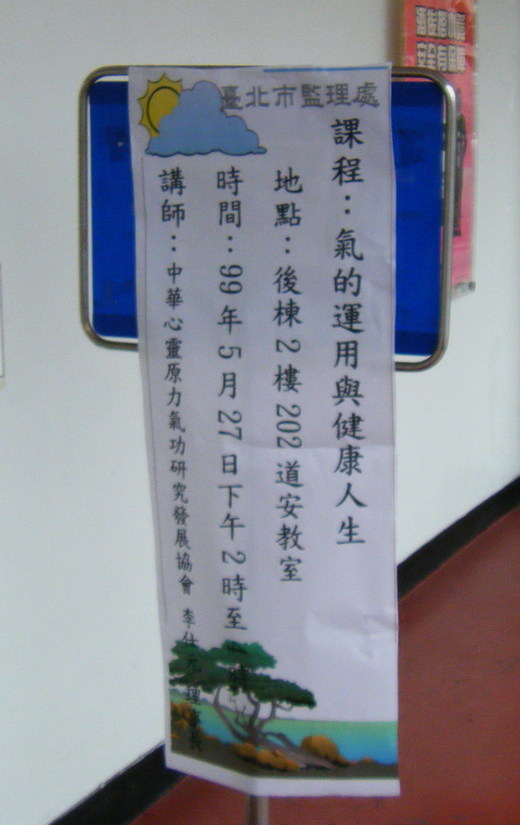 臺北市監理處
課程：氣的運用與健康人生
地點：後棟2樓202道安教室
時間：99年5月27日下午2時至
講師：中華心靈原力氣功研究發展協會 李